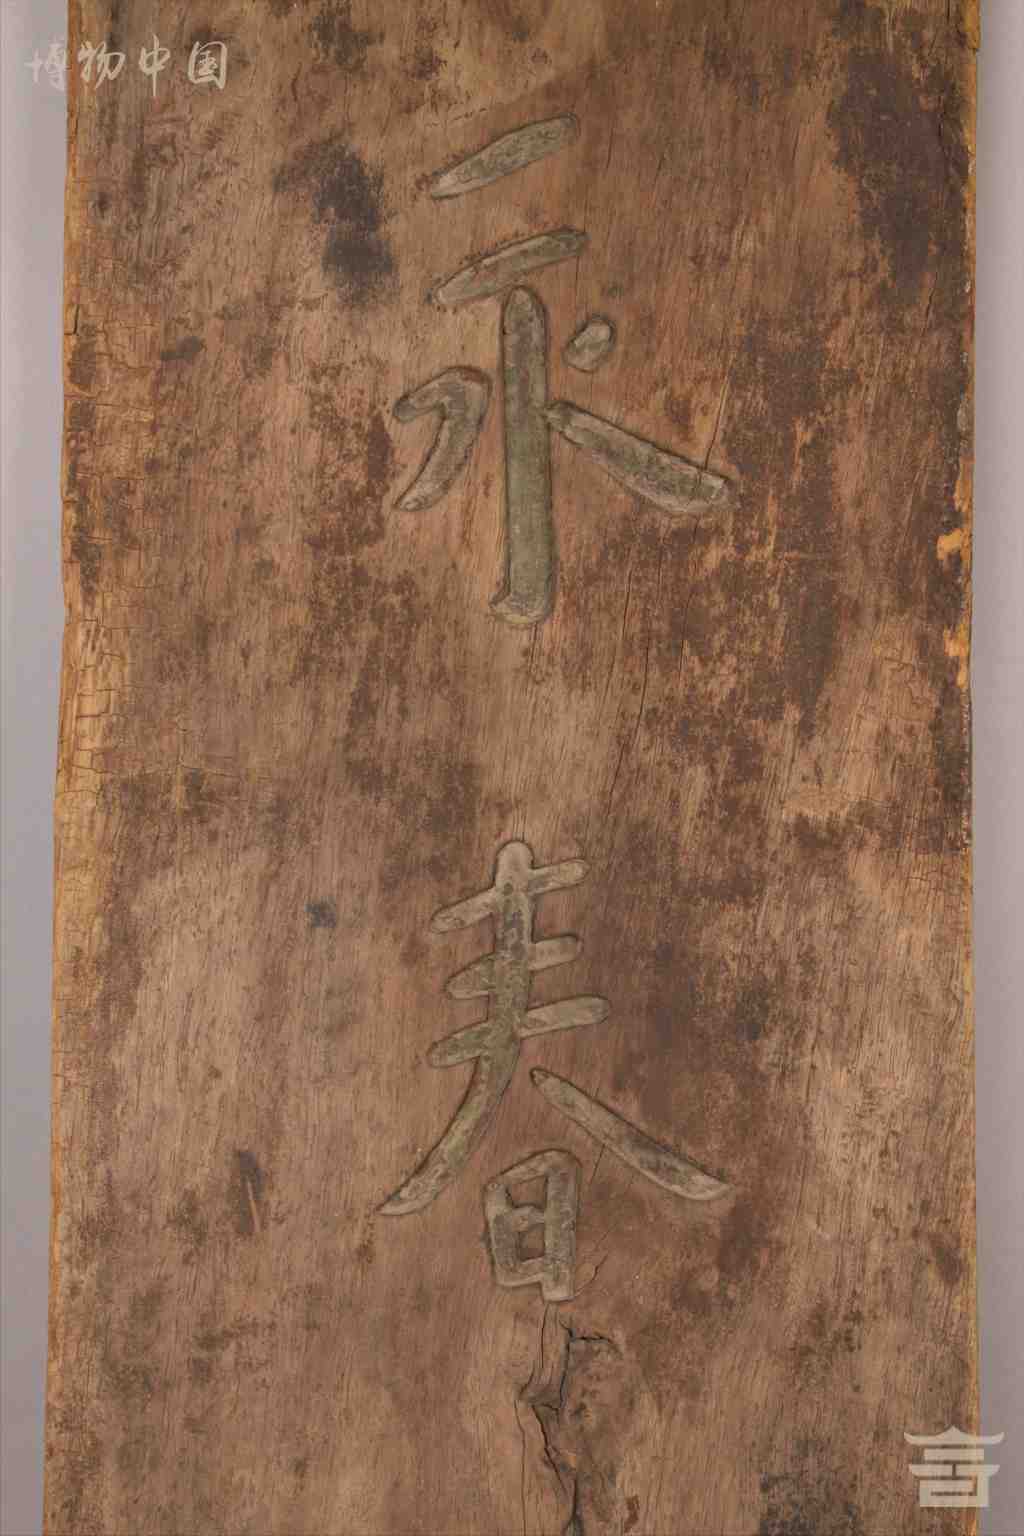 博物中国
永春